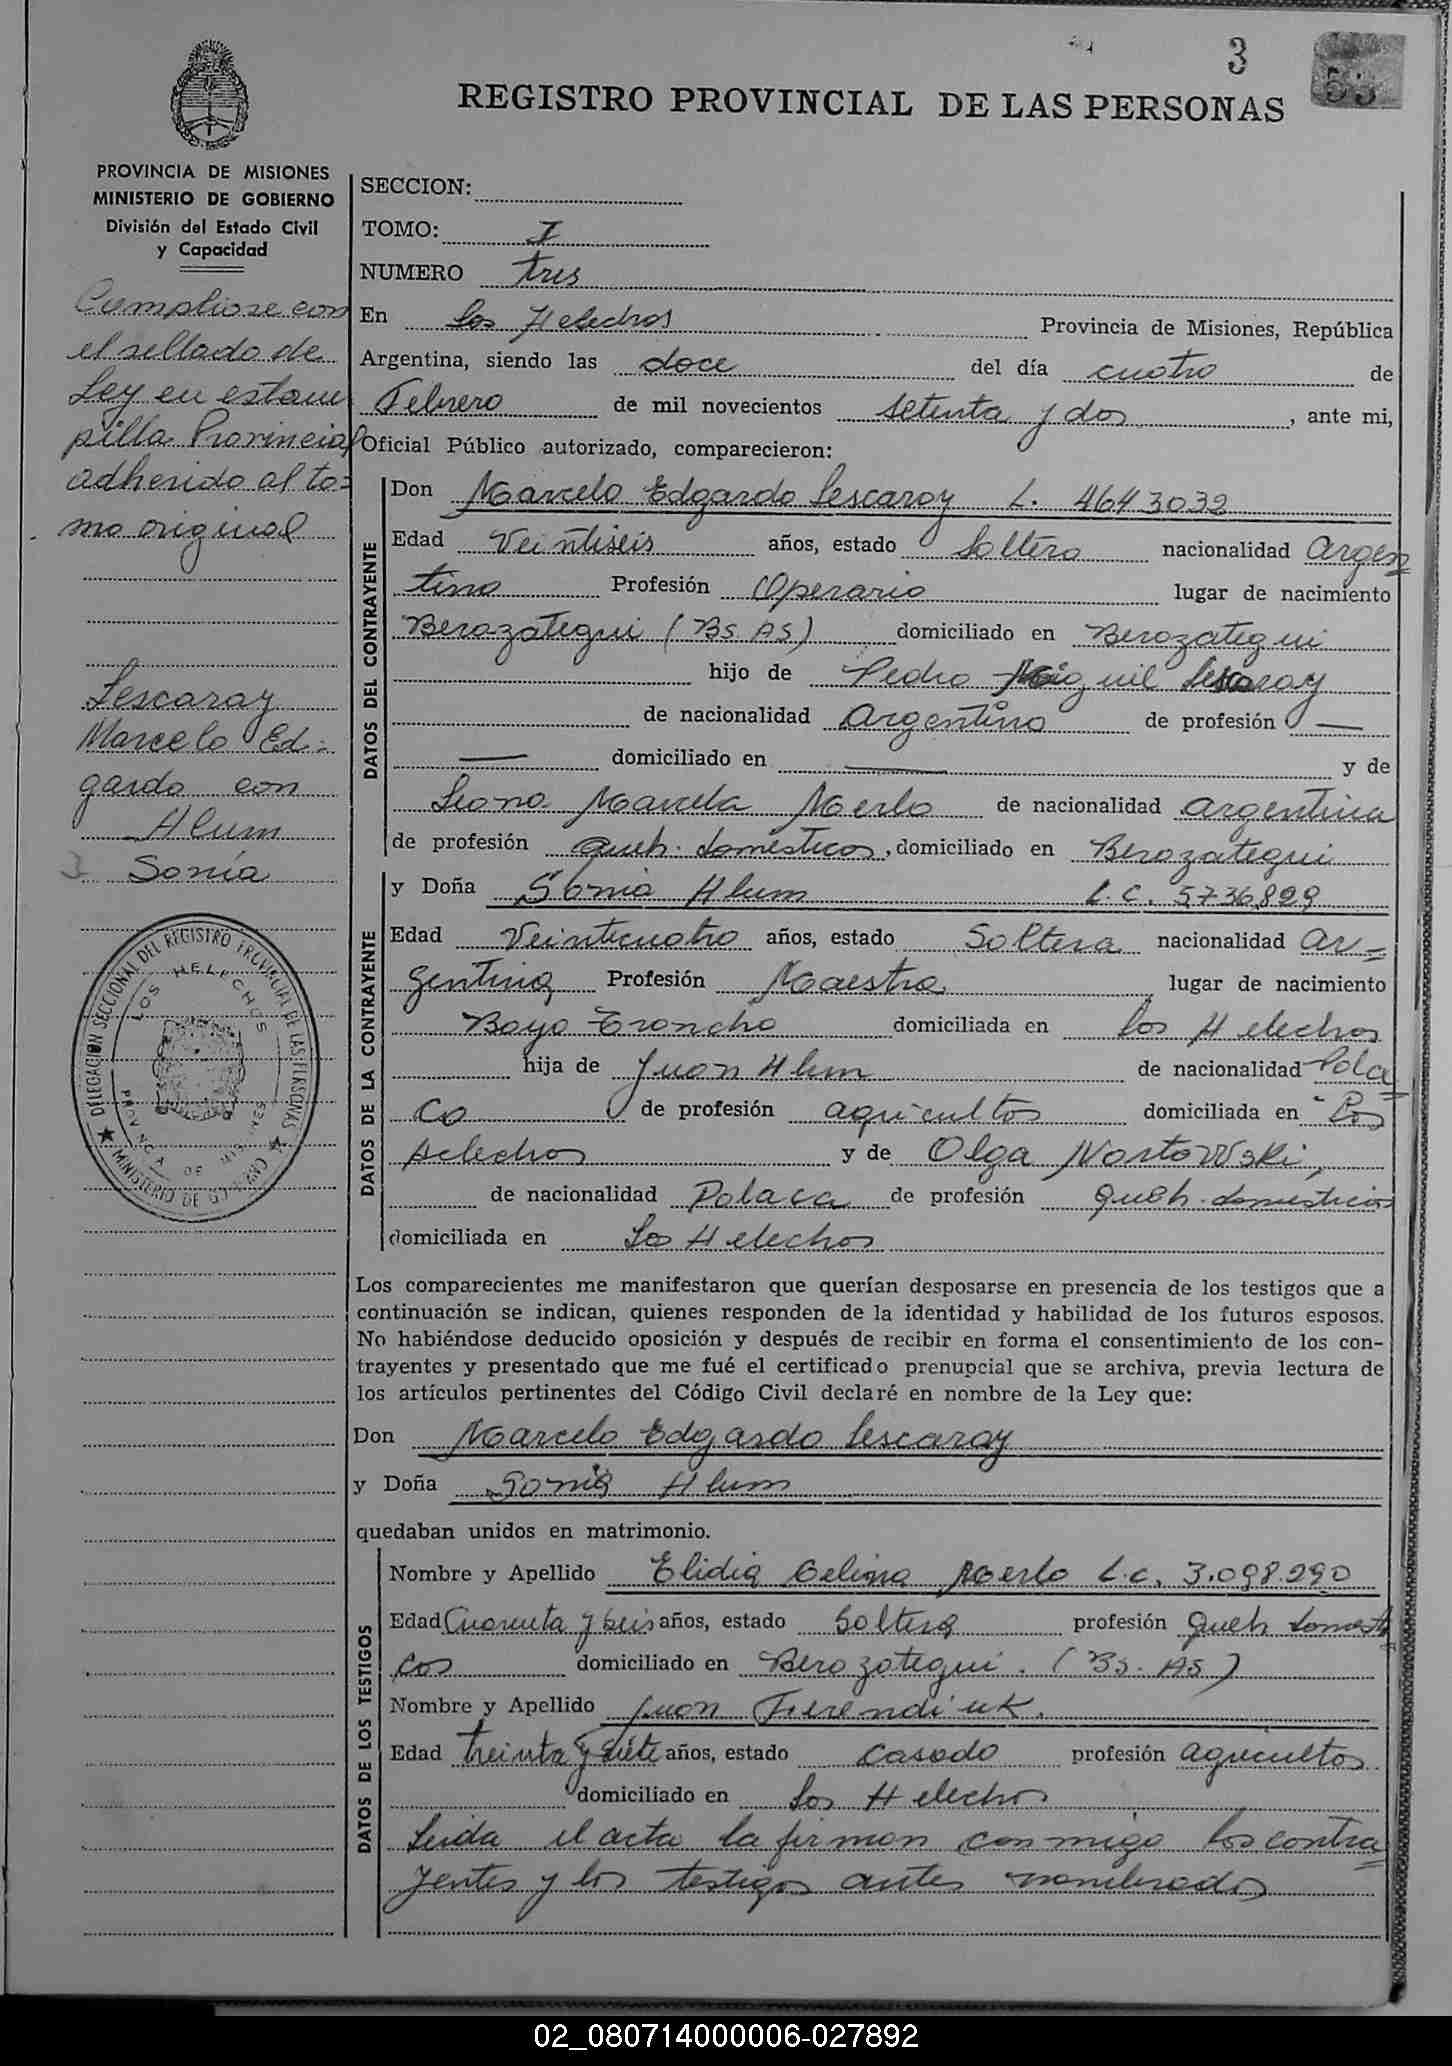 3
REGISTRO PROVINCIAL DE LAS PERSONAS
PROVINCIA DE MISIONES
MINISTERIO DE GOBIERNO
División del Estado Civil
y Capacidad
Cumpliose con
el sellado de
Ley en estam
pilla Provincial
adherido al to=
mo original
Lescaray
Marcelo Ed=
gardo con
Hlum
Sonia
DELEGACION SECCIONAL DEL REGISTRO PROVINCIAL DE LAS PERSONAS
LOS HELECHOS
PROVINCIA DE MISIONES
MINISTERIO DE GOBIERNO
SECCION:
TOMO: I
NUMERO tres
En Los Helechos Provincia de Misiones, República
Argentina, siendo las doce del día cuatro de
Febrero de mil novecientos setenta y dos, ante mi,
Oficial Público autorizado, comparecieron:
DATOS DEL CONTRAYENTE
Don Marcelo Edgardo Lescaray L. 4643032
Edad Veintiseis años, estado Soltero nacionalidad Argen
tino Profesión Operario lugar de nacimiento
Berazategui (Bs. As) domiciliado en Berazategui
hijo de Pedro Miguel Lescaray
de nacionalidad Argentino de profesión —
— domiciliado en — y de
Leona Marcela Merlo de nacionalidad argentina
de profesión Queh. domésticos, domiciliado en Berazategui
DATOS DE LA CONTRAYENTE
y Doña Sonia Hlum L.C. 5736829
Edad Veinticuatro años, estado Soltera nacionalidad Ar=
gentina Profesión Maestra lugar de nacimiento
Bayo Troncho domiciliada en Los Helechos
hija de Juan Hlum de nacionalidad Pola
co de profesión agricultor domiciliada en Los
Helechos y de Olga Nartowski,
de nacionalidad Polaca de profesión Queh. domesticos
domiciliada en Los Helechos
Los comparecientes me manifestaron que querían desposarse en presencia de los testigos que a
continuación se indican, quienes responden de la identidad y habilidad de los futuros esposos.
No habiéndose deducido oposición y después de recibir en forma el consentimiento de los con-
trayentes y presentado que me fué el certificado prenupcial que se archiva, previa lectura de
los artículos pertinentes del Código Civil declaré en nombre de la Ley que:
Don Marcelo Edgardo Lescaray
y Doña Sonia Hlum
quedaban unidos en matrimonio.
DATOS DE LOS TESTIGOS
Nombre y Apellido Elidia Celina Merlo L.C. 3.098.290
Edad Cuarenta y seis años, estado Soltera profesión Queh domesti
cos domiciliado en Berazategui. (Bs. As)
Nombre y Apellido Juan Fierendiuk.
Edad treinta y siete años, estado casado profesión agricultor
domiciliado en Los Helechos
Leida el acta la firman conmigo los contra
yentes y los testigos antes nombrados
02_080714000006-027892